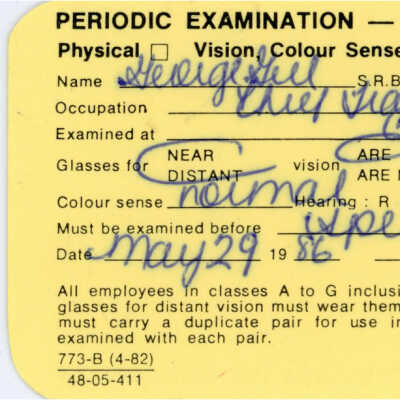 PERIODIC EXAMINATION —
Physical □ Vision, Colour Sense
Name George Gill S.R.B
Occupation Chief
Examined at
Glasses for NEAR DISTANT vision ARE ARE
Colour sense normal Hearing : R
Must be examined before
Date May 29 19 86
All employees in classes A to G inclusi
glasses for distant vision must wear them
must carry a duplicate pair for use in
examined with each pair.
773-B (4-82)
48-05-411